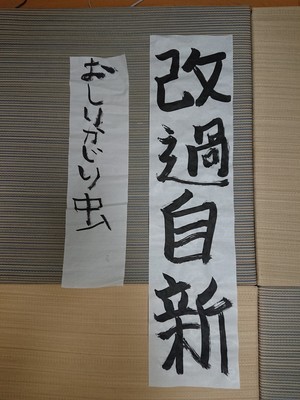 改過自新
おしりかじり虫